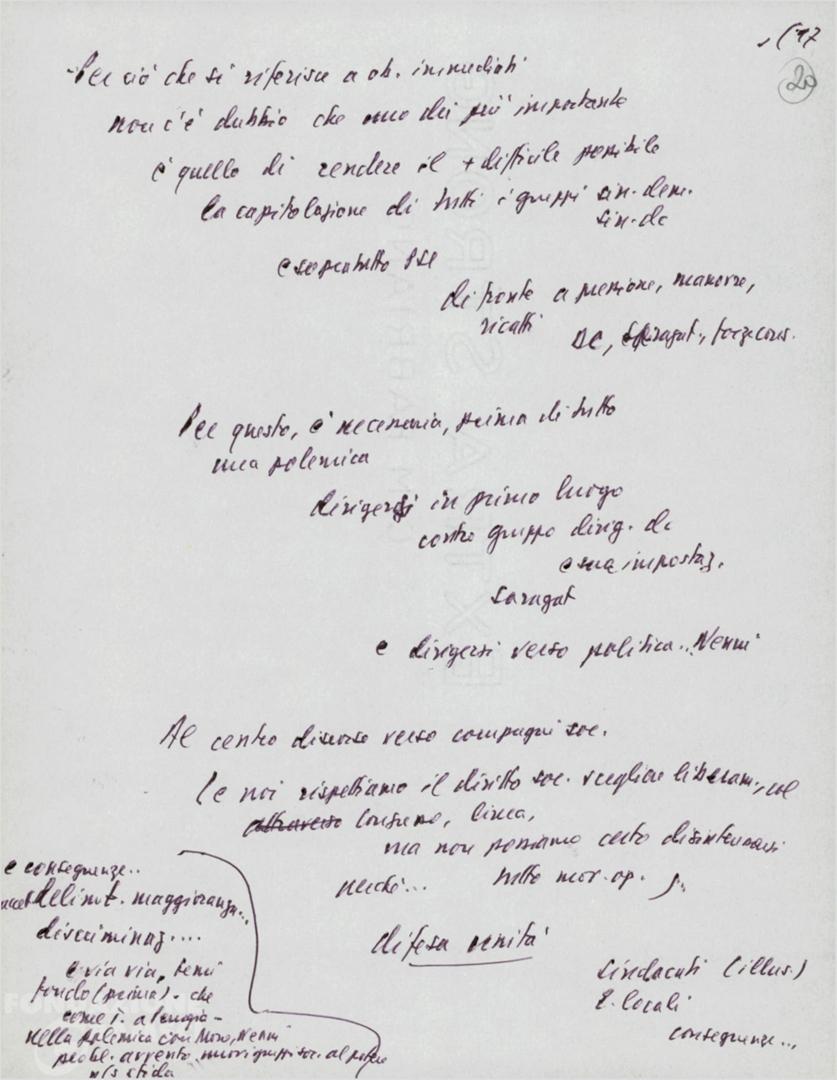 (17
20
Per ciò che si riferisce a ob. immediati
non c'è dubbio che uno dei più importante
è quello di rendere il + difficile possibile
la capitolazione di tutti i gruppi sin. dem.
sin. dc
e soprattutto PSI
di fronte a pressione, manovre,
ricatti
DC, Saragat, forze cons.
Per questo, è necessaria, prima di tutto
una polemica
dirigersi in primo luogo
contro gruppo dirig. dc
e sua impostaz.
Saragat
e dirigersi verso politica.. Nenni
Al centro discorso verso compagni soc.
Se noi rispettiamo il diritto soc. scegliere liberam., col
attraverso Congresso, linea,
ma non possiamo certo disinteressarci
perché... tutto mov. op.
difesa unità
Sindacati (illus.)
E. locali
conseguenze...
e conseguenze..
delimit. maggioranza...
discriminaz....
e via via, temi
fondo (prima) - che
come
nella polemica con Moro, Nenni
probl. avvento nuovi gruppi soc. al potere
n/s sfida